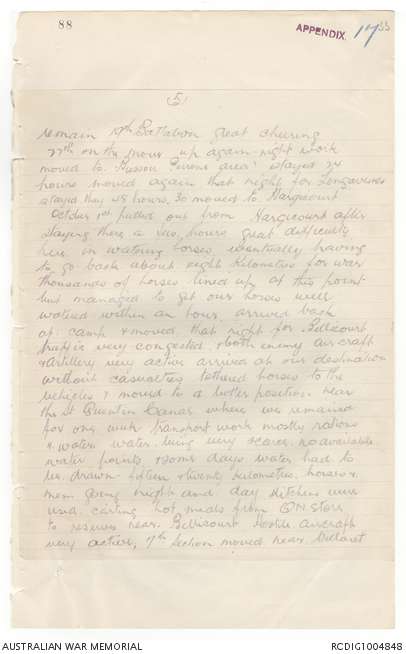 88
APPENDIX 17
(5)
remain 17th Battalion great cheering
27th on the move up again night work
moved to area stayed 24
hours moved again that night for Longavesnes
stayed they 48 hours, 30 moved to Hargicourt
October 1st pulled out from Hargicourt after
staying there a few hours great difficulty
here in watering horses eventually having
to go back about eight Kilometres for water
thousands of horses lined up at this point
but managed to get our horses well
watered within an hour, arrived back
at camp & moved that night for Bellicourt
traffic very congested & both enemy aircraft
& Artillery very active arrived at our destination
without casualties tethered horses to the
vehicles & moved to a better position near
the St Quentin Canal where we remained
for one week transport work mostly rations
& water water being very scarce, no available
water points & some days water had to
be drawn fifteen & twenty kilometres. horses &
men going night and day Kitchens were
used carting hot meals from QM Store
to reserves near Bellicourt hostile aircraft
very active, 7th section moved near
AUSTRALIAN WAR MEMORIAL
RCDIG1004848